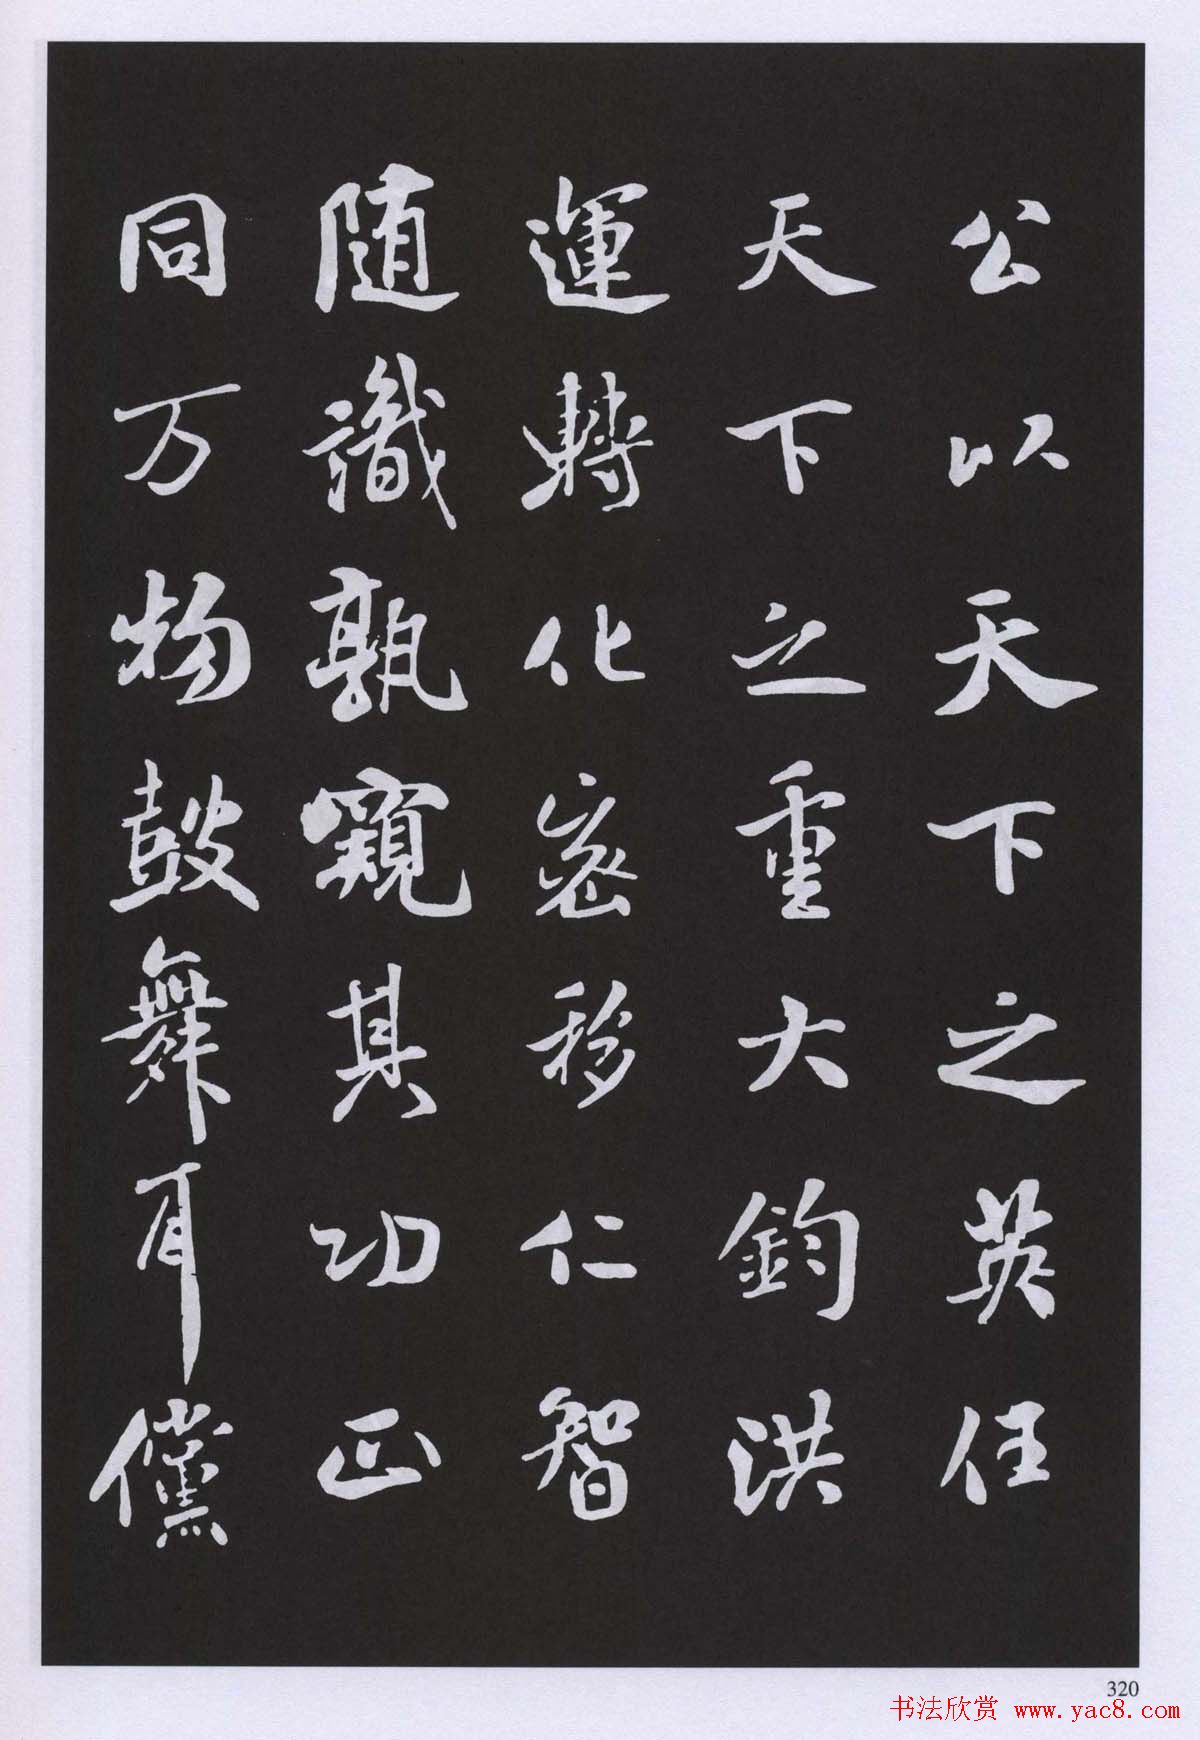 公以天下之英任
天下之重大鈞洪
運轉化密移仁智
随識孰窺其功正
同万物鼓舞耳儻
320
书法欣赏 www.yac8.com